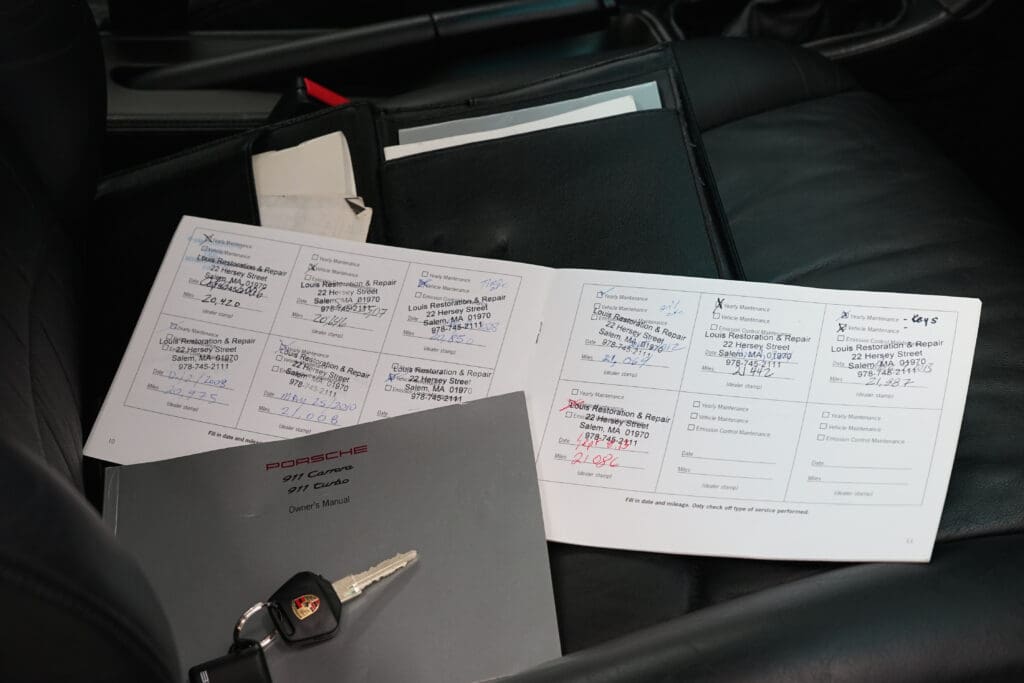 Yearly Maintenance
Vehicle Maintenance
Louis Restoration & Repair
22 Hersey Street
Salem, MA 01970
Miles 20,420
(dealer stamp)
Yearly Maintenance
Vehicle Maintenance
Louis Restoration & Repair
22 Hersey Street
Salem, MA 01970
978-745-2111
Miles
(dealer stamp)
Yearly Maintenance
Vehicle Maintenance
Emission Control
Louis Restoration & Repair
22 Hersey Street
Salem, MA 01970
978-745-2111
20,850
(dealer stamp)
Yearly Maintenance
Louis Restoration & Repair
22 Hersey Street
Salem, MA 01970
978-745-2111
Date
Miles 20,975
(dealer stamp)
Louis Restoration & Repair
22 Hersey Street
Salem, MA 01970
978-745-2111
Date MAY 25/2010
Miles 21,008
(dealer stamp)
Louis Restoration & Repair
22 Hersey Street
Salem, MA 01970
978-745-2111
10
Fill in date and mileage.
Yearly Maintenance
Louis Restoration & Repair
22 Hersey Street
Salem, MA 01970
978-745-2111
Miles
(dealer stamp)
Yearly Maintenance
Vehicle Maintenance
Emission Control Maintenance
Louis Restoration & Repair
22 Hersey Street
Salem, MA 01970
978-745-2111
Miles 21,442
(dealer stamp)
Yearly Maintenance - Keys
Vehicle Maintenance -
Emission Control Maintenance
Louis Restoration & Repair
22 Hersey Street
Salem, MA 01970
978-745-2111
Miles 21,987
(dealer stamp)
Louis Restoration & Repair
22 Hersey Street
Salem, MA 01970
978-745-2111
Date
Miles 21,086
(dealer stamp)
Yearly Maintenance
Vehicle Maintenance
Emission Control Maintenance
Date
Miles
(dealer stamp)
Yearly Maintenance
Vehicle Maintenance
Emission Control Maintenance
Date
Miles
(dealer stamp)
Fill in date and mileage. Only check off type of service performed.
11
PORSCHE
911 Carrera
911 Turbo
Owner's Manual